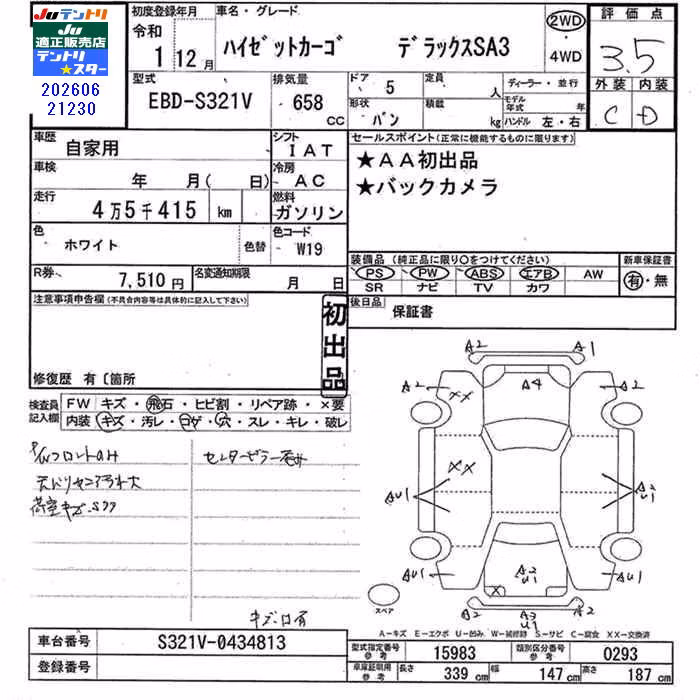 JUテントリ
JU
適正販売店
テントリ
★スター
202606
21230
初度登録年月
令和
1 12月
車名・グレード
ハイゼットカーゴ デラックスSA3
2WD
・
4WD
評価点
3.5
外装 内装
C D
型式
EBD-S321V
排気量
658
CC
ドア
5
形状
バン
定員
人
積載
kg
ディーラー・並行
モデル年式 年
ハンドル 左・右
車歴
自家用
シフト
IAT
車検
年 月( 日)
冷房
AC
走行
4万5千415 km
燃料
ガソリン
色
ホワイト
色替
色コード
W19
R券
7,510円
名変通知期限
月 日
セールスポイント(正常に機能するものに限ります)
★AA初出品
★バックカメラ
装備品 (純正品に限り○をつけてください)
PS PW ABS エアB AW
SR ナビ TV カワ
新車保証書
有・無
後日品
保証書
注意事項申告欄(不具合内容等は具体的に記入して下さい)
初出品
修復歴 有〔箇所
検査員
記入欄
FW キズ・飛石・ヒビ割・リペア跡・×要
内装 キズ・汚レ・コゲ・穴・スレ・キレ・破レ
荷室キズ.サフ
キズ・凹有
A2 A1
A2 A4 A2
XX
XX
AU1 AU1 A2
U1
AU1 A2
U1 AU1
X
A2 A3
U1 A2
スペア
A-キズ E-エクボ U-凹み W-補修跡 S-サビ C-腐食 XX-交換済
車台番号
S321V-0434813
登録番号
型式指定番号
参考
15983
類別区分番号
参考
0293
車庫証明用
参考
長さ
339 cm
幅
147 cm
高さ
187 cm